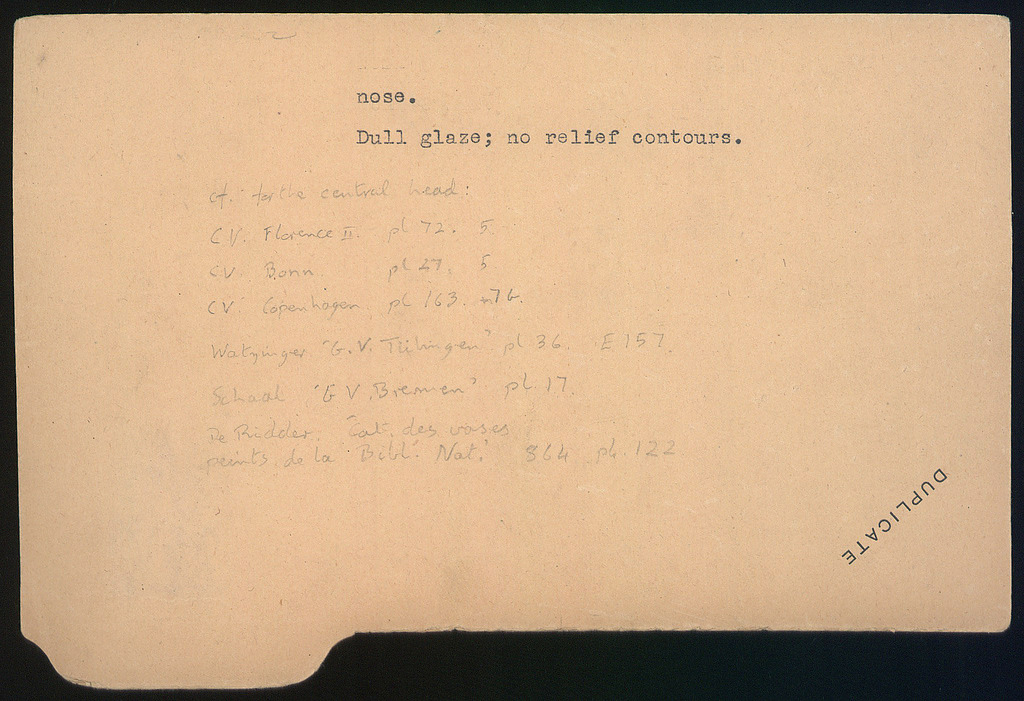 nose.
Dull glaze; no relief contours.
cf. for the central head:
CV. Florence II. pl 72. 5
CV. Bonn. pl 27. 5
CV. Copenhagen, pl 163.
Watzinger "G.V. Tübingen" pl 36. E 157.
Schaal "G V. Bremen" pl. 17
De Ridder. Cat. des vases
peints de la Bibl. Nat. 864 pl. 122
DUPLICATE